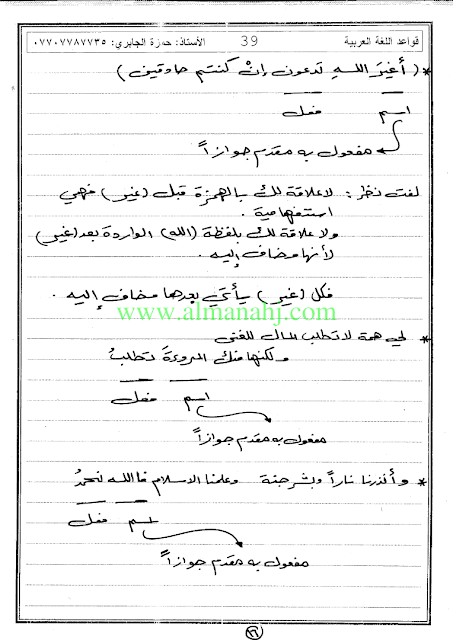 قواعد اللغة العربية 39 الأستاذ: حمزة الجابري: ٠٧٧٠٧٧٨٧٧٣٥
* ( أغيرَ اللهِ تدعون إنْ كنتم صادقين )
اسم فعل
مفعول به مقدم جوازاً
لفت نظر : لاعلاقة لك بالهمزة قبل (غير) فهي
استفهامية .
ولا علاقة لك بلفظة (الله) الواردة بعد (غير)
لأنها مضاف إليه .
فكل (غير) يأتي بعدها مضاف إليه .
www.almanahj.com
* لي همة لا تطلب المال للغنى
ولكنها منك المروءةَ تطلبُ
اسم فعل
مفعول به مقدم جوازاً
* وأنذرنا ناراً وبشر جنة وعلمنا الاسلام فالله نحمدُ
اسم فعل
مفعول به مقدم جوازاً